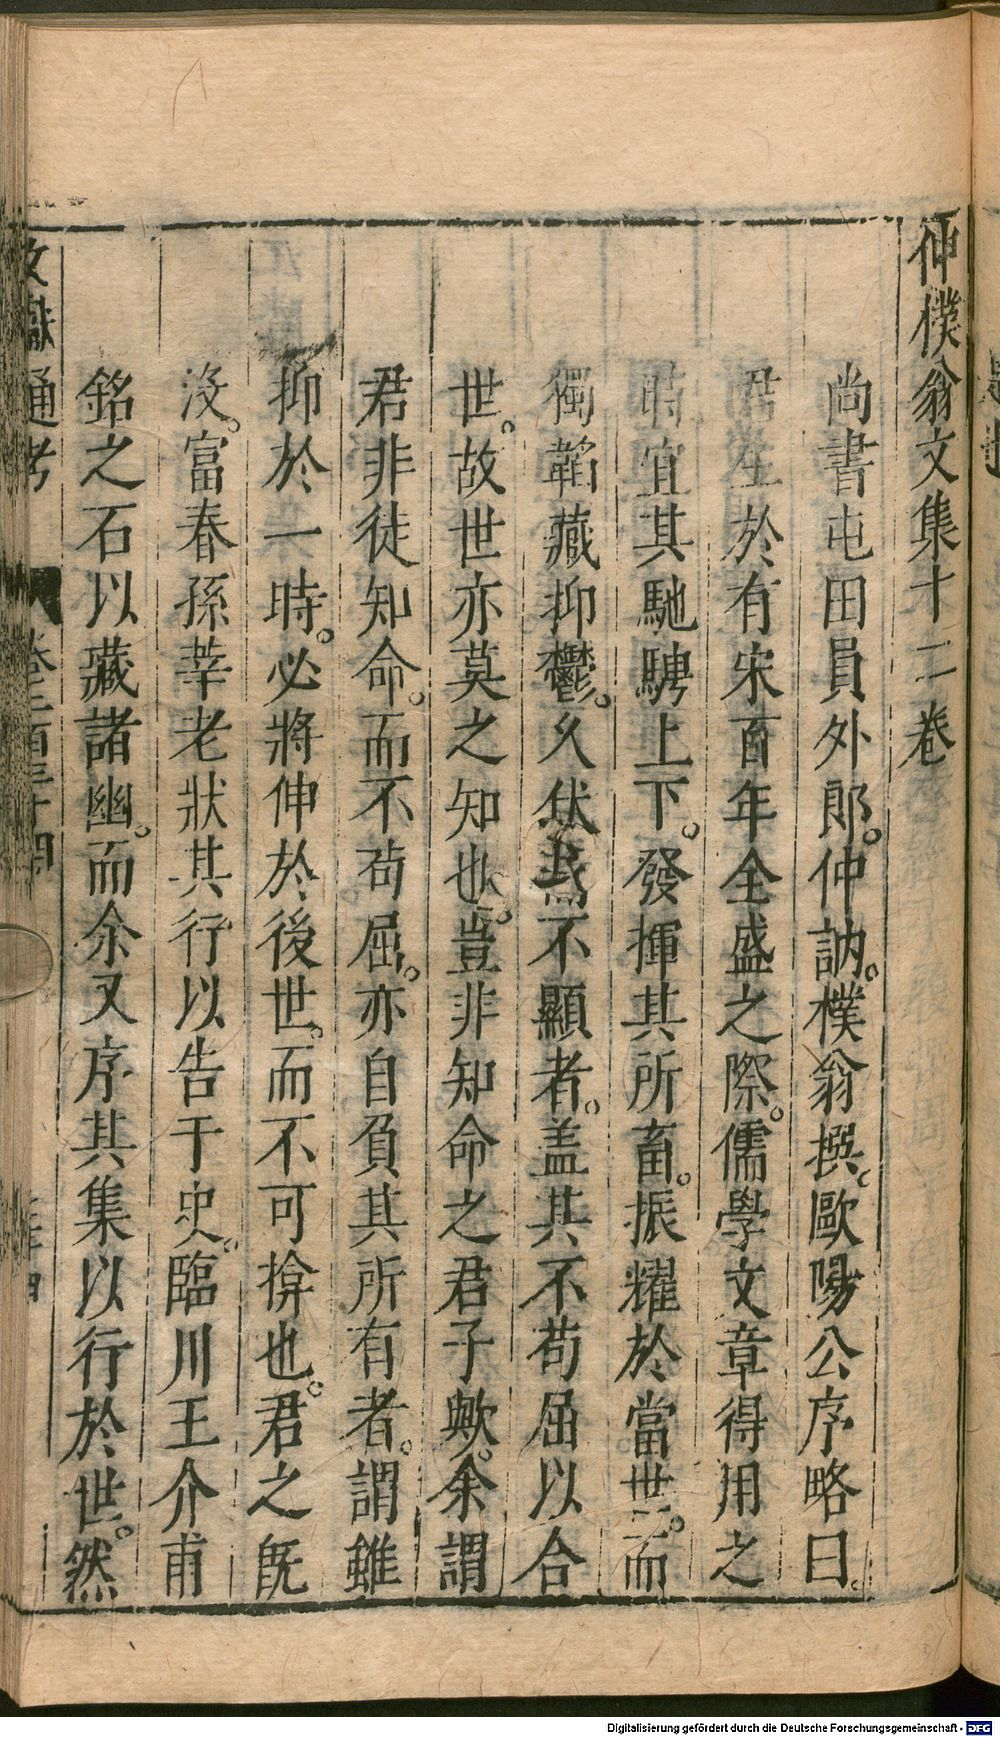 仲樸翁文集十二卷
尚書屯田員外郎。仲訥。樸翁撰。歐陽公序略曰。
君生於有宋百年全盛之際。儒學文章得用之
時宜其馳騁上下。發揮其所畜。振耀於當世。而
獨韜藏抑鬱。久伏而不顯者。盖其不苟屈以合
世。故世亦莫之知也。豈非知命之君子歟。余謂
君非徒知命。而不苟屈。亦自負其所有者。謂雖
抑於一時。必將伸於後世。而不可揜也。君之旣
沒。富春孫莘老狀其行以告于史。臨川王介甫
銘之石以藏諸幽。而余又序其集以行於世。然
文獻通考 卷二百三十四
Digitalisierung gefördert durch die Deutsche Forschungsgemeinschaft - DFG